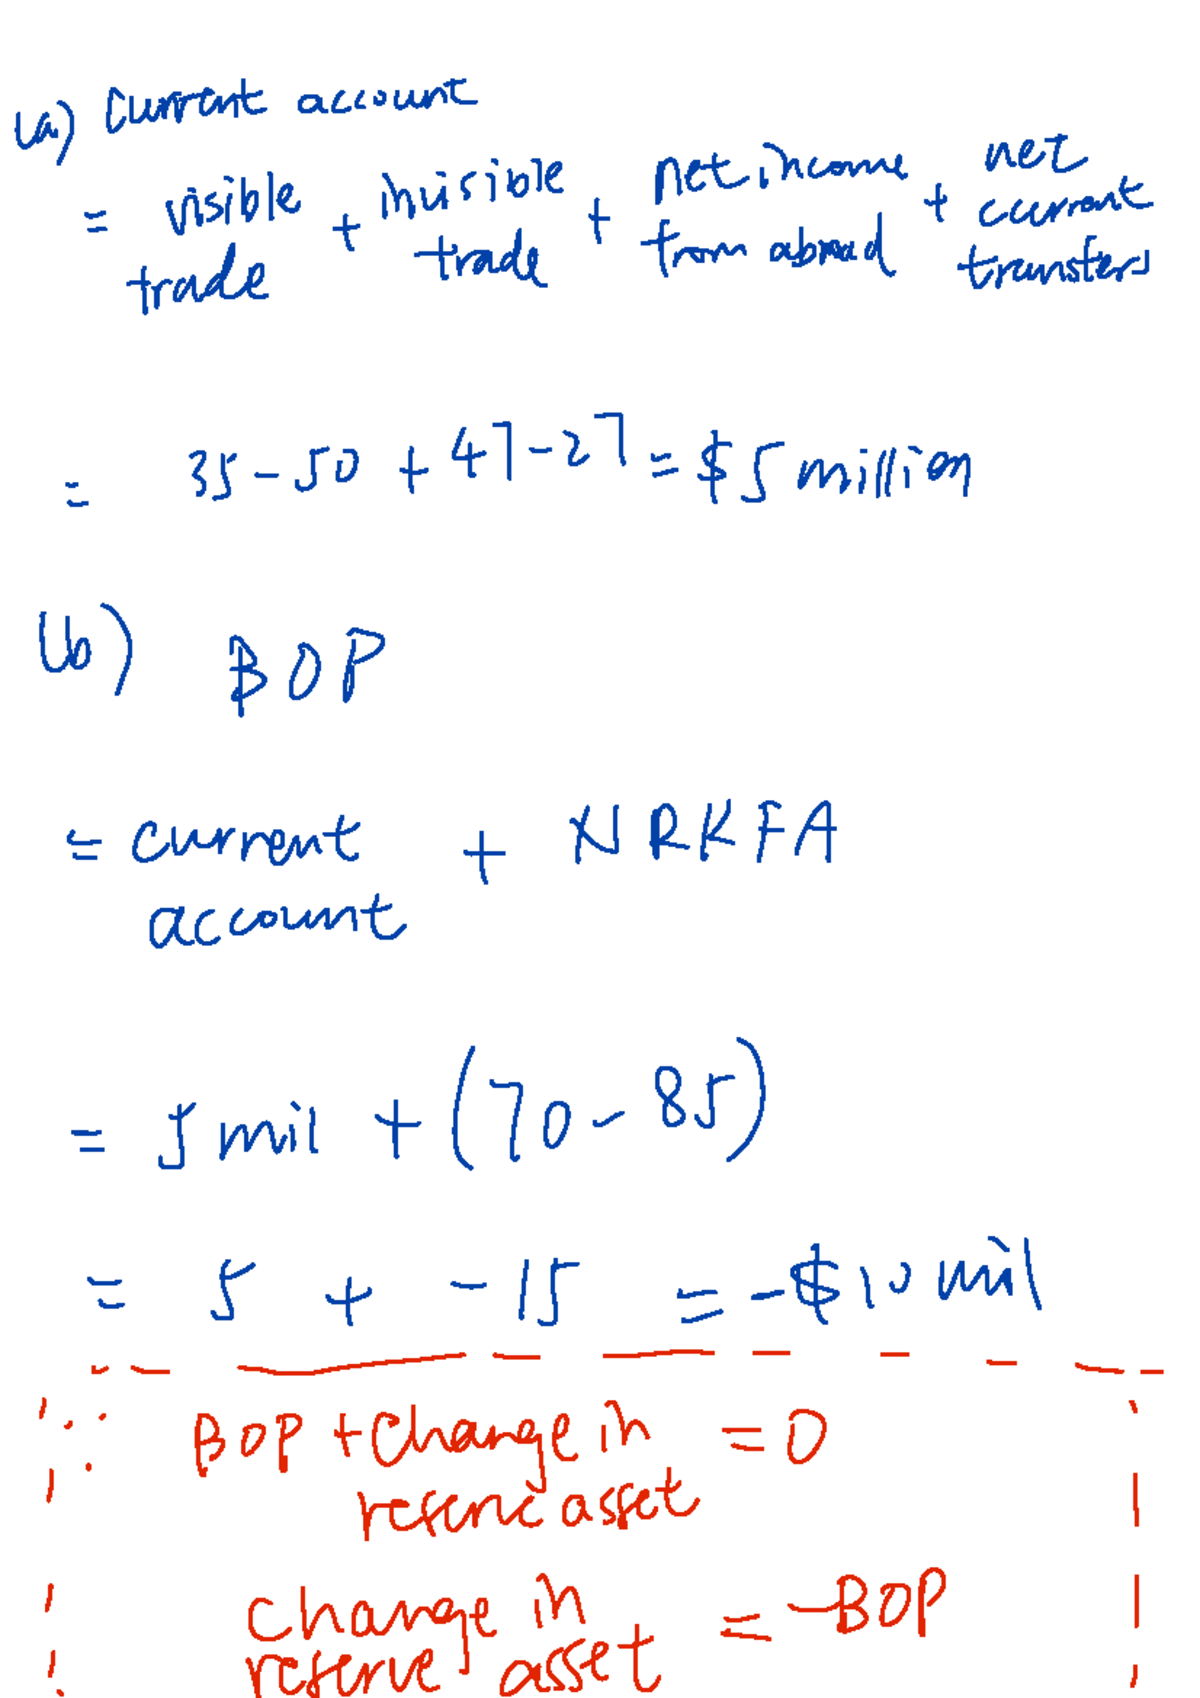 (a) Current account
= visible trade + invisible trade + net income from abroad + net current transfers
= 35 - 50 + 47 - 27 = $5 million
(b) BOP
= current account + NRKFA
= 5 mil + (70 - 85)
= 5 + -15 = -$10 mil
∵ BOP + change in reserve asset = 0
change in reserve asset = -BOP